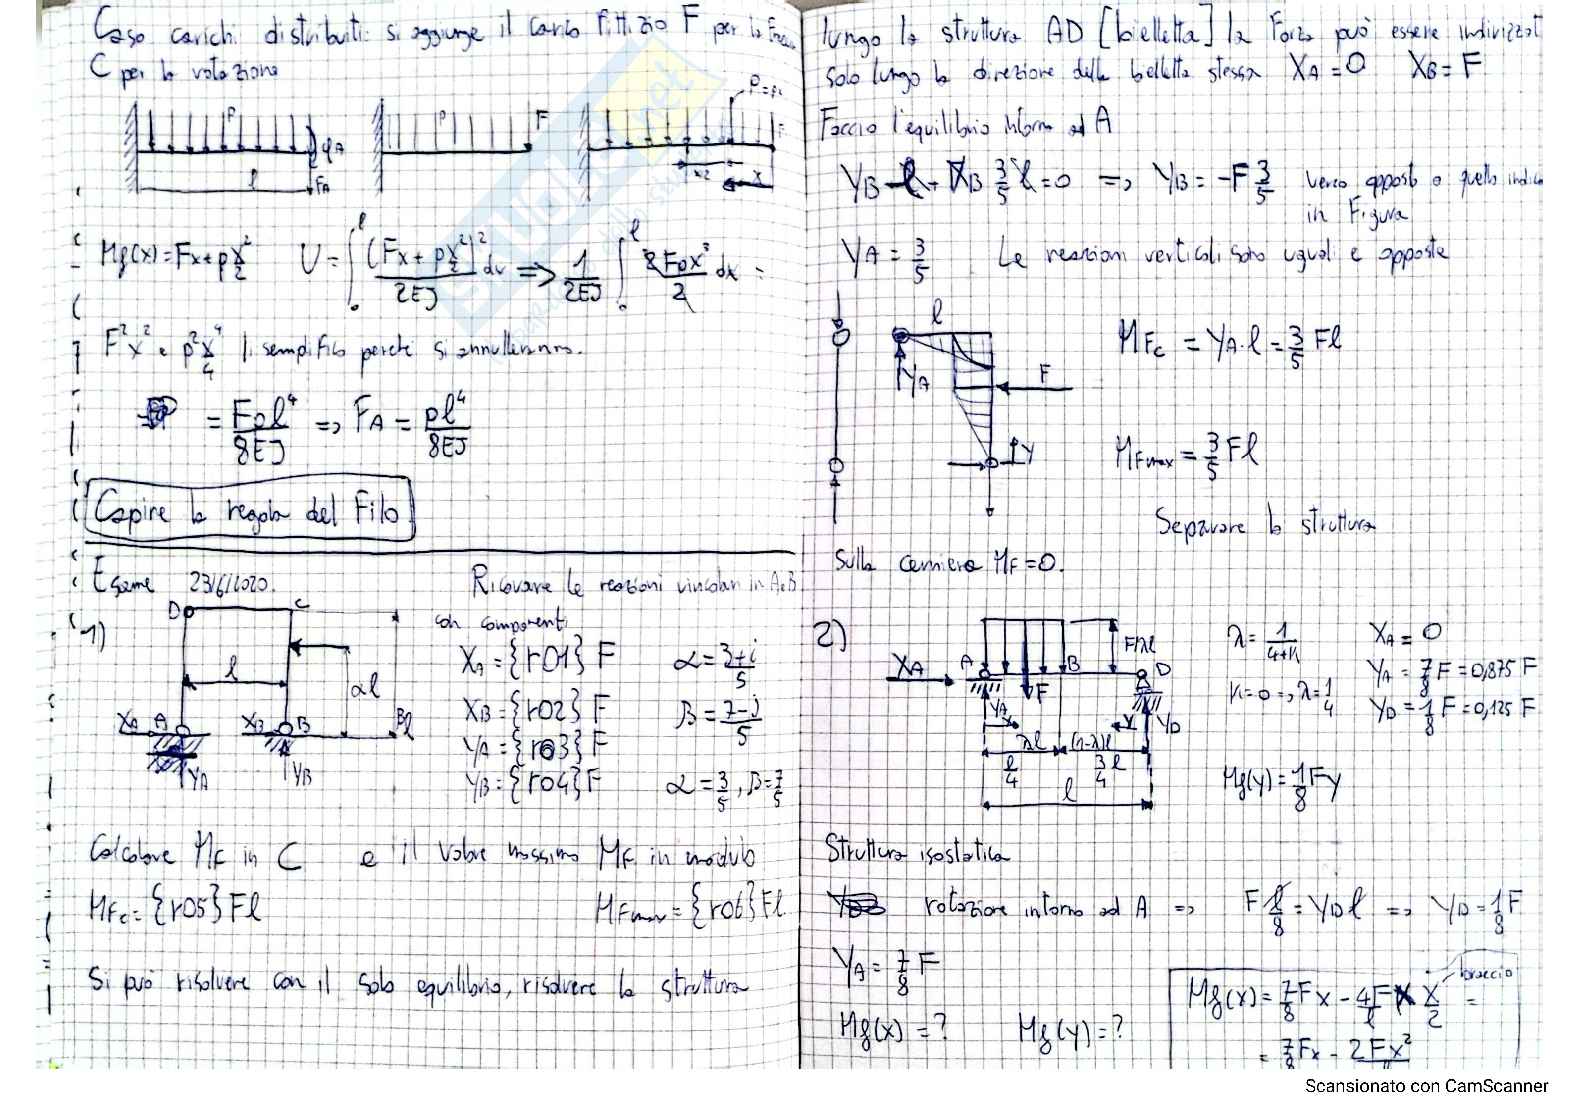 Caso carichi distribuiti: si aggiunge il carico fittizio F per la
C per la rotazione
P
φA
l
FA
P
F
x
Mf(x) = Fx + p x²/2
U = ∫₀ˡ (Fx + p x²/2)² / 2EJ dx => 1/2EJ ∫₀ˡ 2Fpx³/2 dx =
F²x² e p²x⁴/4 li semplifico perché si annulleranno.
= Fpl⁴/8EJ => FA = pl⁴/8EJ
Capire la regola del Filo
Esame 23/6/2020.
Ricavare le reazioni vincolari in A e B
1)
con componenti
D
C
l
αl
βl
XA
A
XB
B
YA
YB
XA = {r01} F
α = 3+i/5
XB = {r02} F
β = 7-j/5
YA = {r03} F
YB = {r04} F
α = 3/5, β = 7/5
Calcolare MF in C e il valore massimo MF in modulo
MFc = {r05} Fl
MFmax = {r06} Fl
Si può risolvere con il solo equilibrio, risolvere la struttura
lungo la struttura AD [bielletta] la Forza può essere
solo lungo la direzione della bielletta stessa XA = 0 XB = F
Faccio l'equilibrio intorno ad A
YB l + XB 3/5 l = 0 => YB = -F 3/5 verso opposto a quello
in Figura
YA = 3/5 Le reazioni verticali sono uguali e opposte
l
YA
F
Y
MFc = YA·l = 3/5 Fl
MFmax = 3/5 Fl
Separare la struttura
Sulla cerniera MF = 0.
2)
XA
A
B
D
F/λl
F
YA
x
y
YD
λl
(1-λ)l
l/4
3/4 l
l
λ = 1/4+K
K = 0 => λ = 1/4
XA = 0
YA = 7/8 F = 0,875 F
YD = 1/8 F = 0,125 F
Mf(y) = 1/8 Fy
Struttura isostatica
rotazione intorno ad A => F l/8 = YD l => YD = 1/8 F
YA = 7/8 F
Mf(x) = ?
Mf(y) = ?
braccio
Mf(x) = 7/8 Fx - 4F/l x x/2 =
= 7/8 Fx - 2Fx²
Scansionato con CamScanner